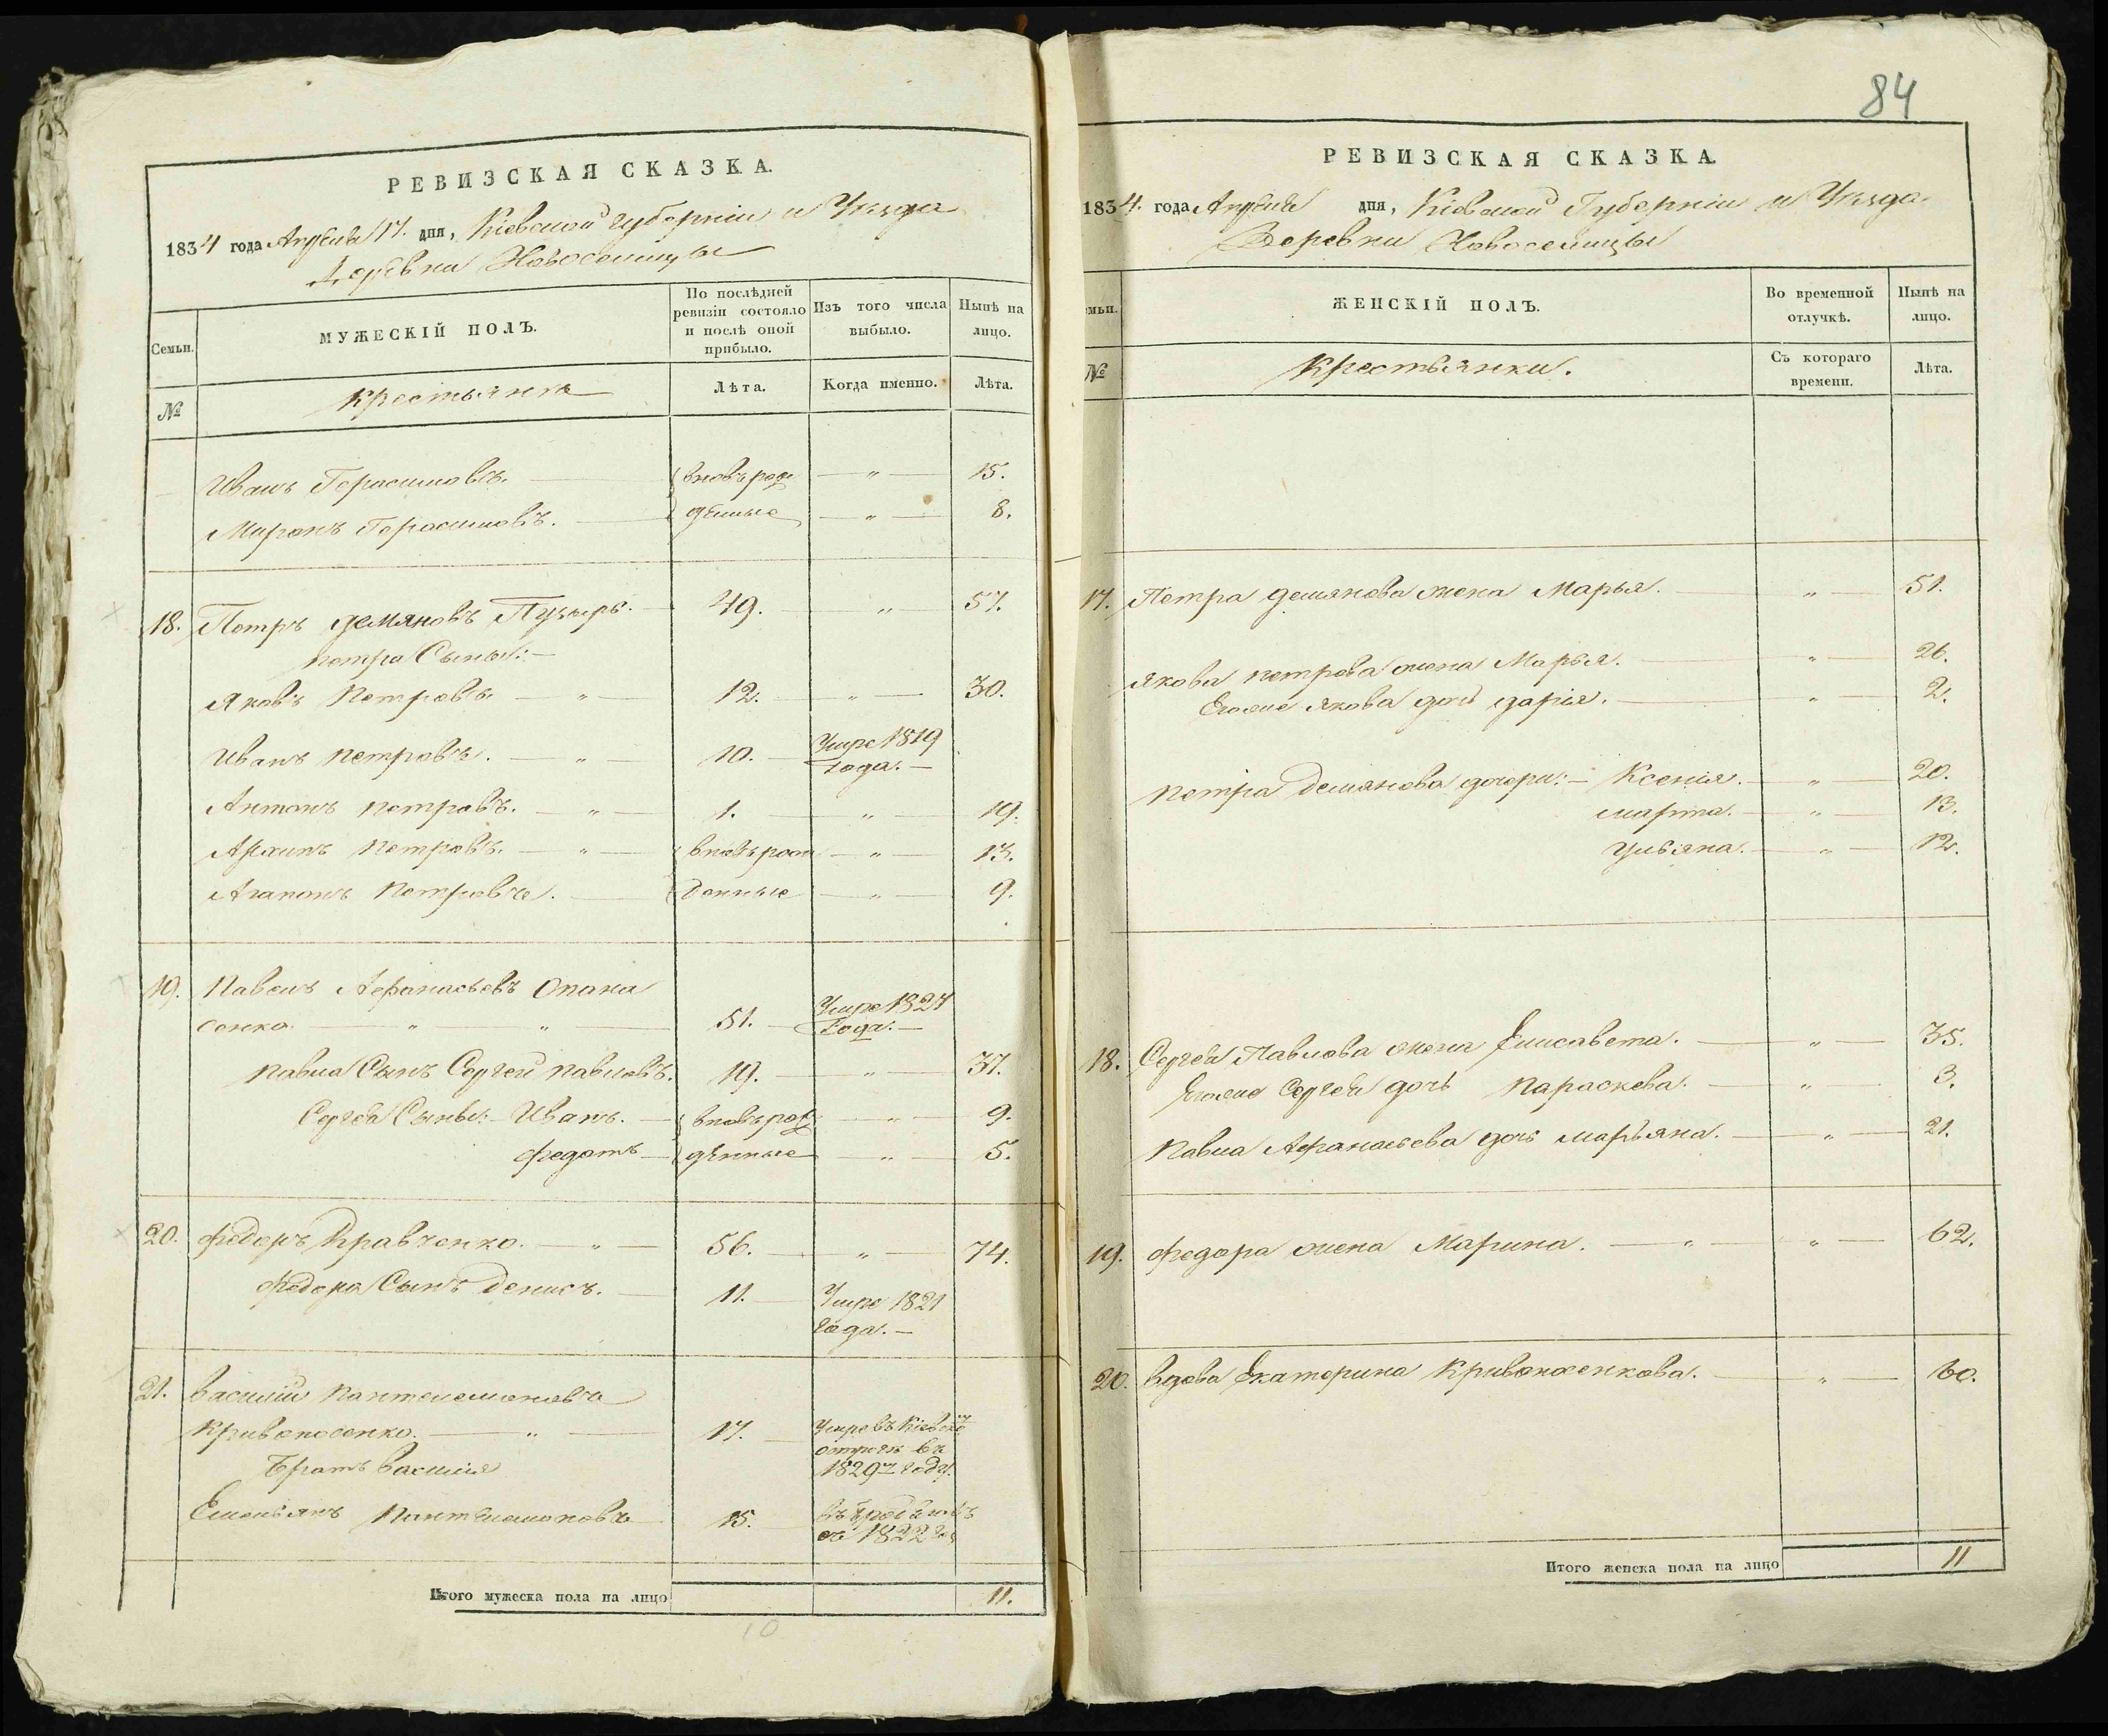 84
РЕВИЗСКАЯ СКАЗКА.
1834 года Апреля 17. дня, Кіевской губерніи и Уезда
Деревни Новоселицы
Семьи.
МУЖЕСКІЙ ПОЛЪ.
По послѣдней ревизіи состояло и послѣ оной прибыло.
Изъ того числа выбыло.
Нынѣ на лицо.
№
Крестьяне
Лѣта.
Когда именно.
Лѣта.
Иванъ Герасимовъ. вновърож „ 15.
Миронъ Герасимовъ. денные „ 8.
18. Петръ Демяновъ Пузырь. 49. „ 57.
Петра Сыны:
Яковъ Петровъ. „ 12. „ 30.
Иванъ Петровъ. „ 10. Умре 1819 Года.
Антонъ Петровъ. „ 1. „ 19.
Архипъ Петровъ. „ вновърож „ 13.
Агапонъ Петровъ. денные „ 9.
19. Павелъ Афанасьевъ Опана
сенко. „ „ 51. Умре 1827 Года.
Павла Сынъ Сергей Павловъ. 19. „ 37.
Сергея Сыны: Иванъ. вновърож „ 9.
Федотъ денные „ 5.
20. Федоръ Кравченко. „ 56. „ 74.
Федора Сынъ Денисъ. 11. Умре 1821 года.
21. Василий Пантелемоновъ
Кривоносенко. „ 17. Умре въ Кіевско остроге въ 1829 году.
Братъ Василия
Емельянъ Пантелемоновъ 15. съ 1822
Итого мужеска пола на лицо 11.
10
РЕВИЗСКАЯ СКАЗКА.
1834. года Апреля дня, Кіевской Губерніи и Уезда
Деревни Новоселицы
емьи.
ЖЕНСКІЙ ПОЛЪ.
Во временной отлучкѣ.
Нынѣ на лицо.
№
Крестьянки.
Съ котораго времени.
Лѣта.
17. Петра Демянова жена Марья. „ 51.
Якова Петрова жена Марья. „ 26.
Егоже Якова дочь Дарія. „ 2.
Петра Демянова дочери: Ксенія. „ 20.
Марта. „ 13.
Ульяна. „ 12.
18. Сергея Павлова жена Елисавета. „ 35.
Егоже Сергея дочь Параскева. „ 3.
Павла Афанасьева дочь Марьяна. „ 21.
19. Федора жена Марина. „ „ 62.
20. Вдова Екатерина Кривоносенкова. „ 60.
Итого женска пола на лицо 11